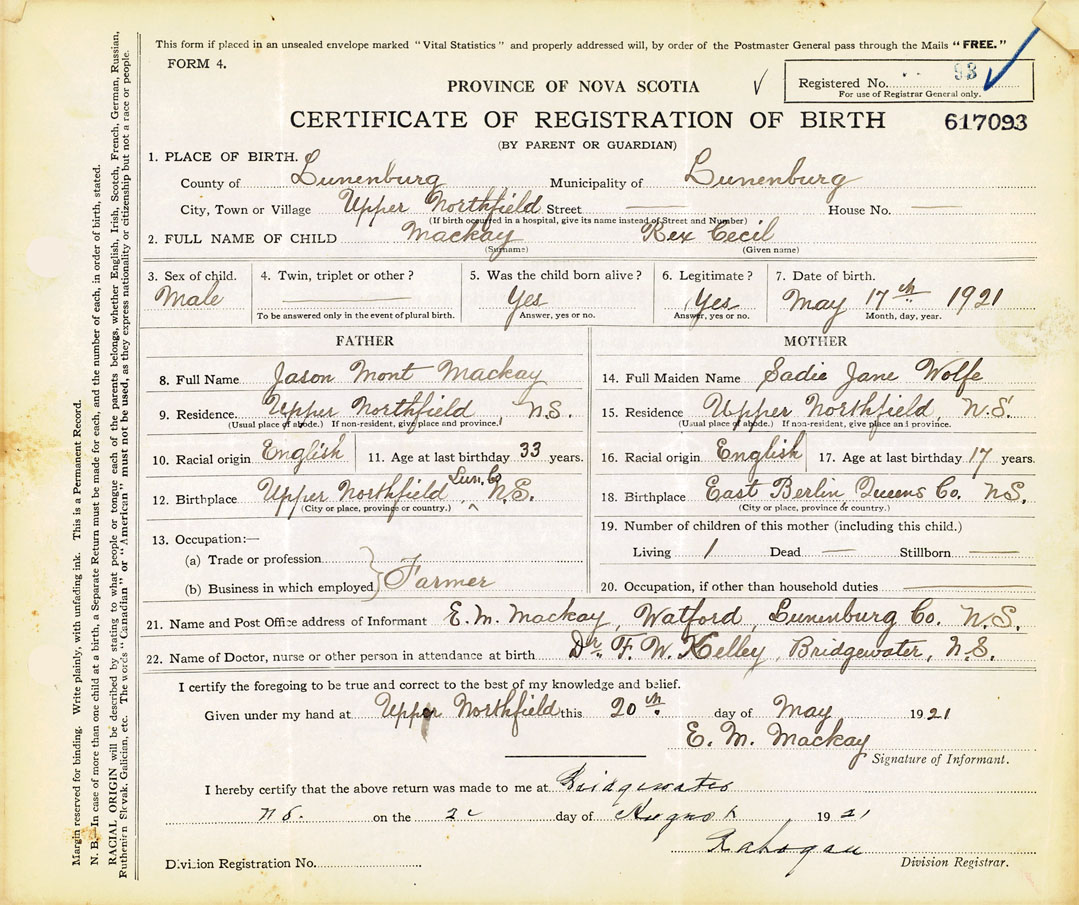 This form if placed in an unsealed envelope marked "Vital Statistics" and properly addressed will, by order of the Postmaster General pass through the Mails "FREE."
FORM 4.
Registered No. 93
For use of Registrar General only.
PROVINCE OF NOVA SCOTIA
CERTIFICATE OF REGISTRATION OF BIRTH 617093
(BY PARENT OR GUARDIAN)
1. PLACE OF BIRTH.
County of Lunenburg Municipality of Lunenburg
City, Town or Village Upper Northfield Street — House No. —
(If birth occurred in a hospital, give its name instead of Street and Number)
2. FULL NAME OF CHILD Mackay Rex Cecil
(Surname) (Given name)
3. Sex of child. 4. Twin, triplet or other? 5. Was the child born alive? 6. Legitimate? 7. Date of birth.
Male — Yes Yes May 17th 1921
To be answered only in the event of plural birth. Answer, yes or no. Answer, yes or no. Month, day, year.
FATHER
8. Full Name Jason Mont Mackay
9. Residence. Upper Northfield, N.S.
(Usual place of abode.) If non-resident, give place and province.
10. Racial origin English 11. Age at last birthday 33 years.
12. Birthplace Upper Northfield, Lun. Co N.S.
(City or place, province or country.)
13. Occupation:—
(a) Trade or profession
(b) Business in which employed Farmer
MOTHER
14. Full Maiden Name Sadie Jane Wolfe
15. Residence Upper Northfield, N.S.
(Usual place of abode.) If non-resident, give place and province.
16. Racial origin English 17. Age at last birthday 17 years.
18. Birthplace East Berlin Queens Co. N.S.
(City or place, province or country.)
19. Number of children of this mother (including this child.)
Living 1 Dead — Stillborn —
20. Occupation, if other than household duties —
21. Name and Post Office address of Informant E. M. Mackay, Watford, Lunenburg Co. N.S.
22. Name of Doctor, nurse or other person in attendance at birth Dr. F. W. Kelley, Bridgewater, N.S.
I certify the foregoing to be true and correct to the best of my knowledge and belief.
Given under my hand at Upper Northfield this 20th day of May 1921
E. M. Mackay
Signature of Informant.
I hereby certify that the above return was made to me at Bridgewater
N S. on the day of August 1921
Division Registration No. Division Registrar.
Margin reserved for binding. Write plainly, with unfading ink. This is a Permanent Record.
N. B.—In case of more than one child at a birth, a Separate Return must be made for each, and the number of each, in order of birth, stated.
RACIAL ORIGIN will be described by stating to what people or tongue each of the parents belongs, whether English, Irish, Scotch, French, German, Russian,
Ruthenian Slovak, Galician, etc. The words "Canadian" or "American" must not be used, as they express nationality or citizenship but not a race or people.